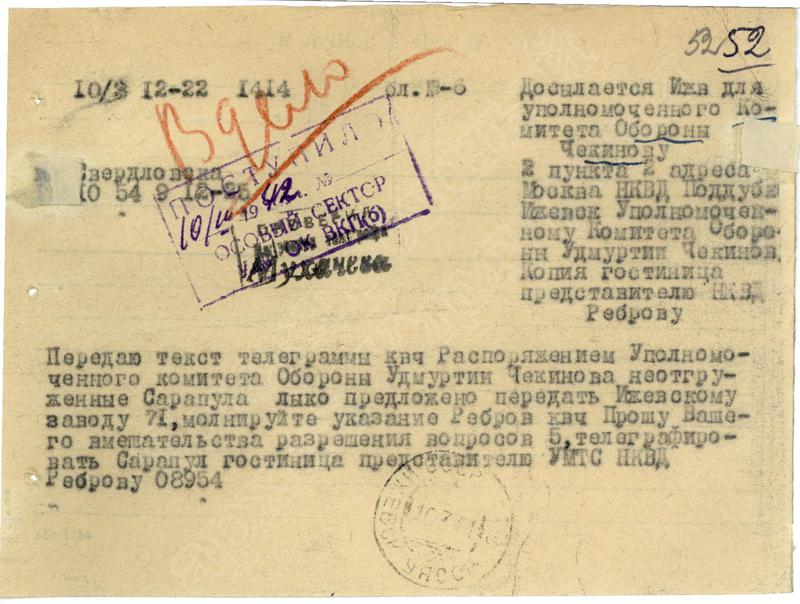 52 52
10/3 12-22 1414 бл.№-6
В дело
Досылается Ижв для
уполномоченного Ко-
митета Обороны
Чекинову
2 пункта 2 адреса
Москва НКВД Поддубк
Ижевск Уполномочен-
ному Комитета Оборо-
ны Удмуртии Чекинов
Копия гостиница
представителю НКВД
Реброву
Свердловска
54 9
ПОСТУПИЛО
10/III 1942 г. №
ОСОБЫЙ СЕКТОР
ОК ВКП(б)
Мухачева
Передаю текст телеграммы квч Распоряжением Уполномо-
ченного комитета Обороны Удмуртии Чекинова неотгру-
женные Сарапула лыко предложено передать Ижевскому
заводу 71,молнируйте указание Ребров квч Прошу Ваше-
го вмешательства разрешения вопросов 5,телеграфиро-
вать Сарапул гостиница представителю УМТС НКВД
Реброву 08954